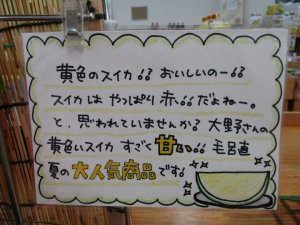 黄色のスイカ!! おいしいのー!!
スイカは やっぱり 赤!! だよねー。
と、思われていませんか? 大野さんの
黄色いスイカ すごく 甘い!! 毛呂直
夏の 大人気商品 です!